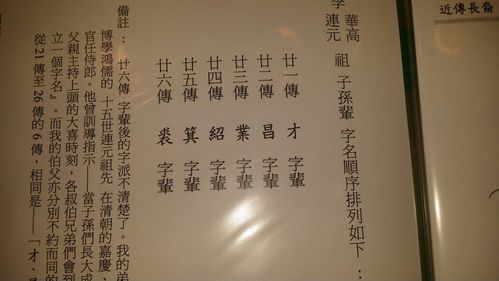 近傳長裔
華高
連元
祖 子孫輩 字名順序排列如下：
廿一傳 才 字輩
廿二傳 昌 字輩
廿三傳 業 字輩
廿四傳 紹 字輩
廿五傳 箕 字輩
廿六傳 裘 字輩
備註： 廿六傳 字輩後的字派不清楚了。我的弟
博學鴻儒的 十五世連元祖先 在清朝的嘉慶、
官任侍郎。他曾訓導指示——當子孫們長大成
父親主持上頭的大喜時刻，各叔伯兄弟們會到
立一個字名』。而我的伯父亦分別不約而同的
從21傳至26傳的6傳，相同是——「才、